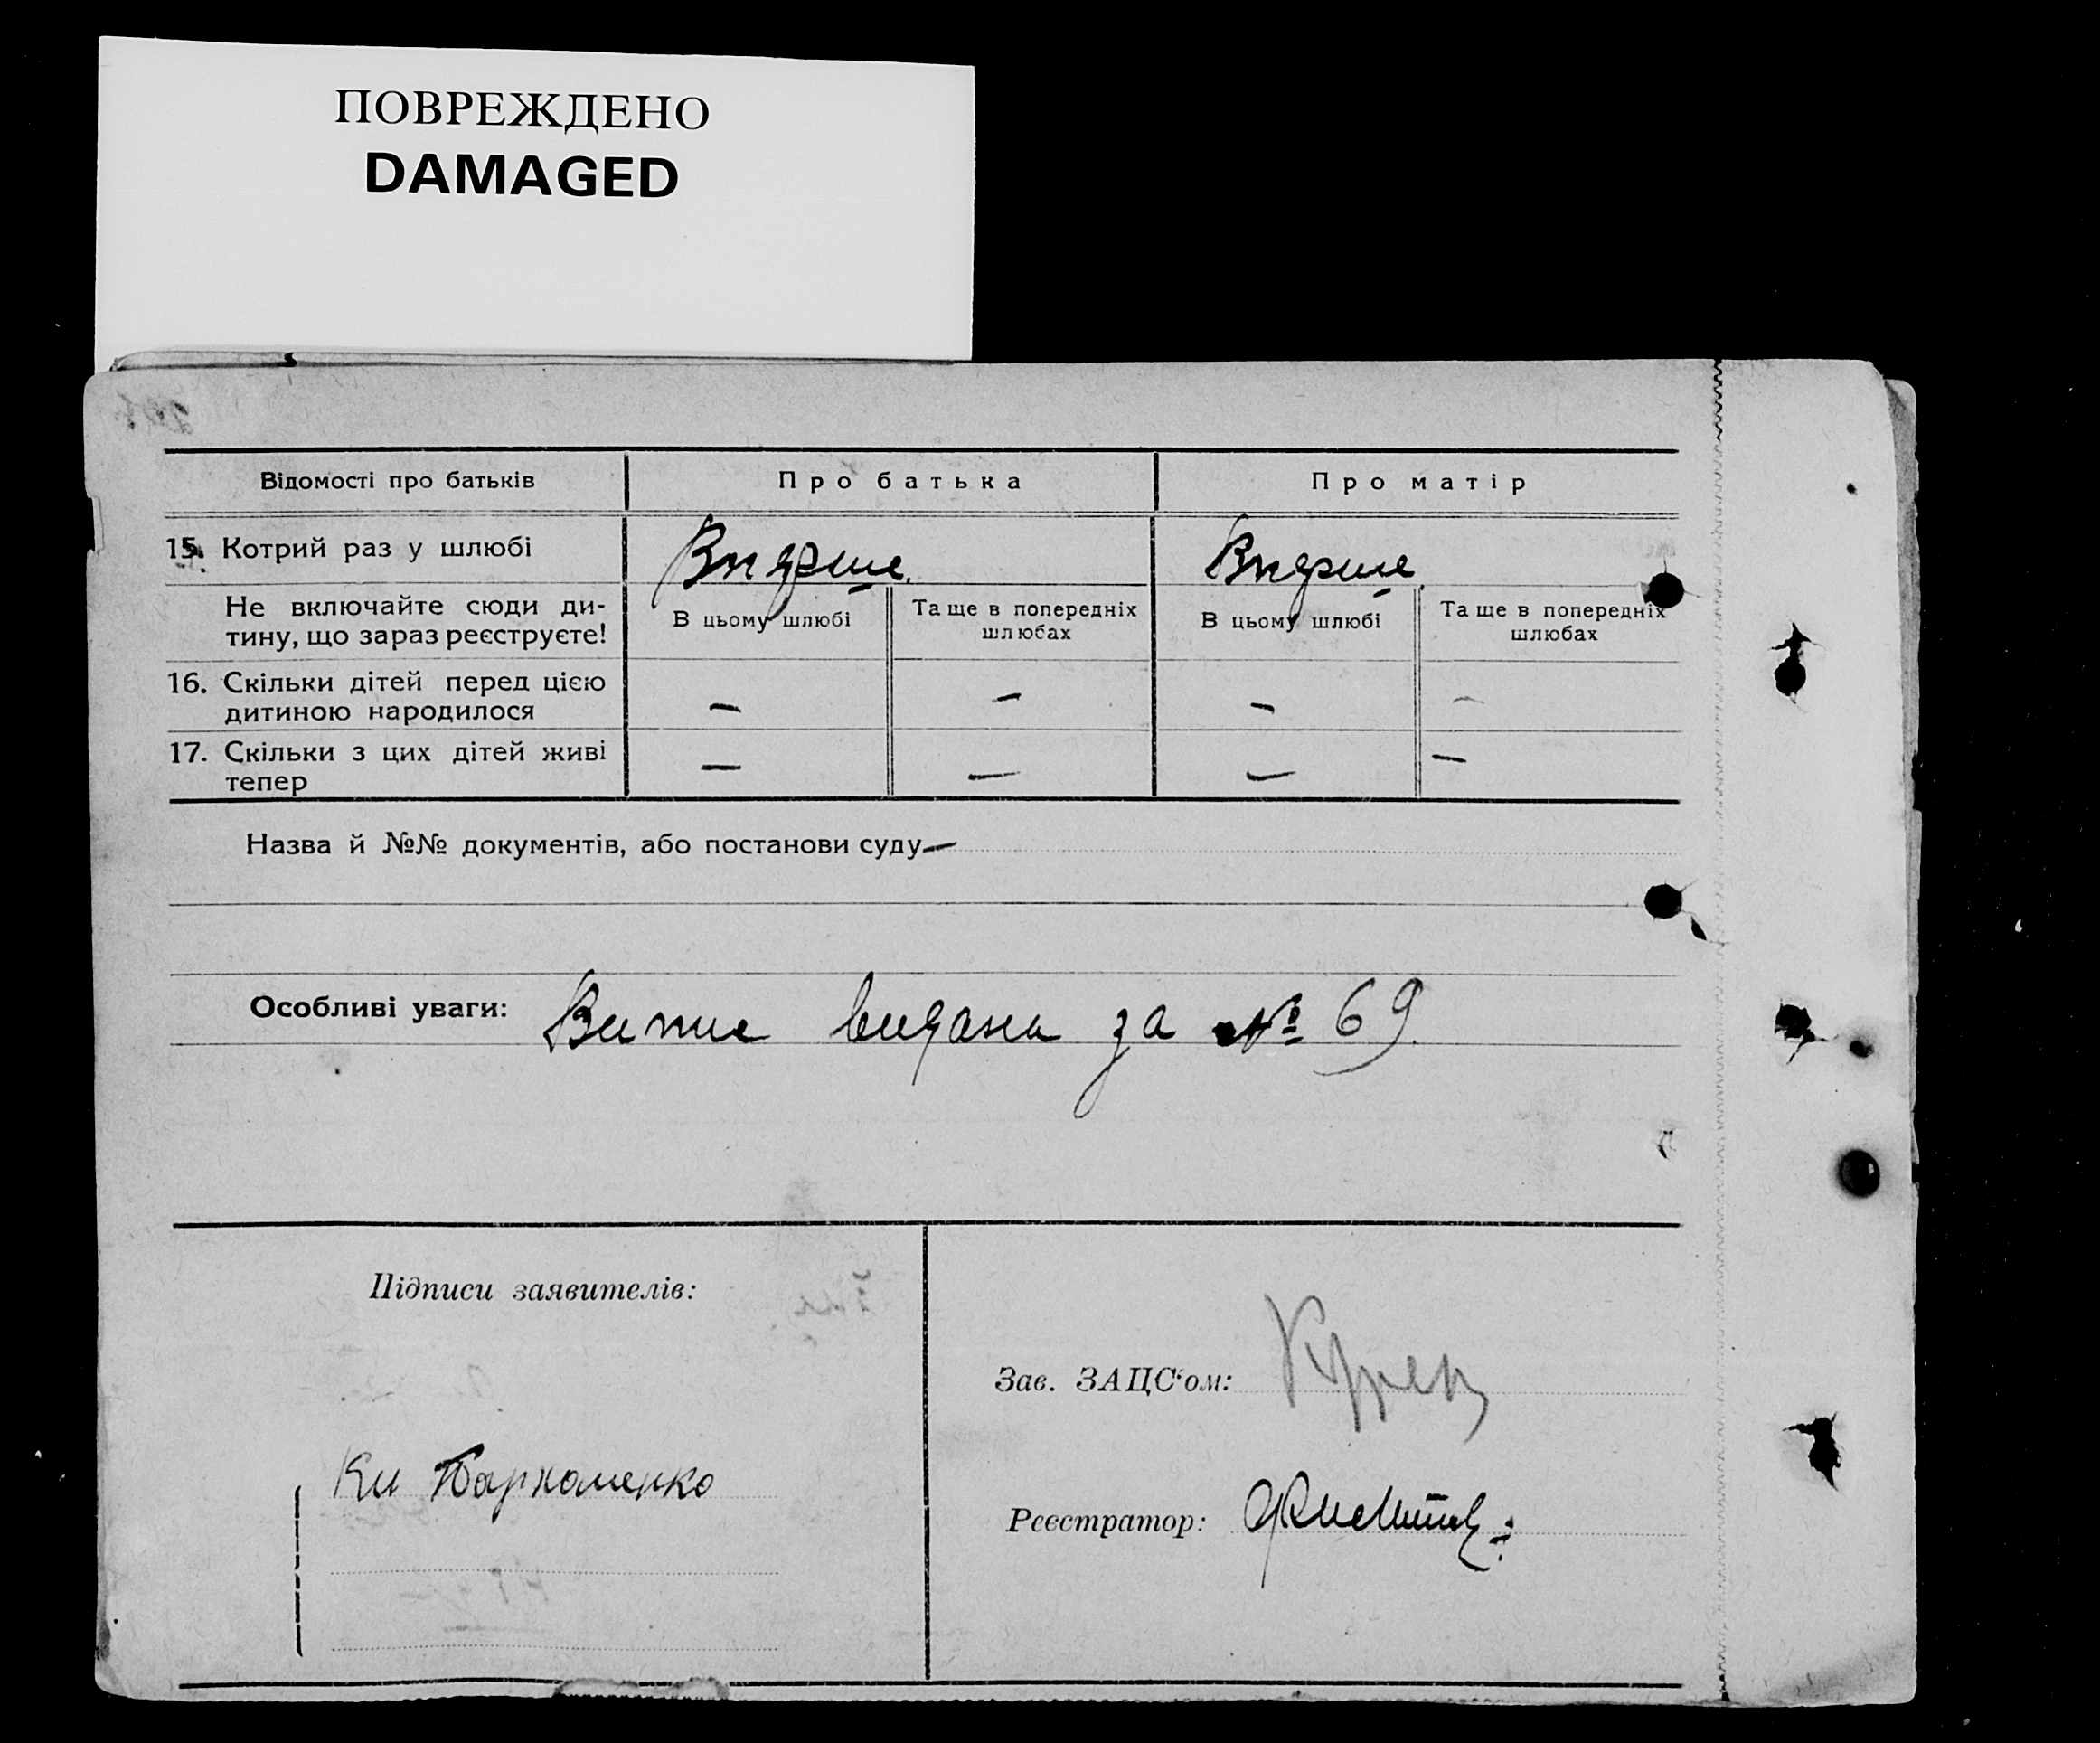 ПОВРЕЖДЕНО
DAMAGED
Відомості про батьків
Про батька
Про матір
15. Котрий раз у шлюбі
Вперше.
Вперше
Не включайте сюди ди-
тину, що зараз реєструєте!
В цьому шлюбі
Та ще в попередніх
шлюбах
В цьому шлюбі
Та ще в попередніх
шлюбах
16. Скільки дітей перед цією
дитиною народилося
– – – –
17. Скільки з цих дітей живі
тепер
– – – –
Назва й №№ документів, або постанови суду –
Особливі уваги: Випис видана за № 69.
Підписи заявителів:
Зав. ЗАЦС‘ом:
Пархоменко
Реєстратор: